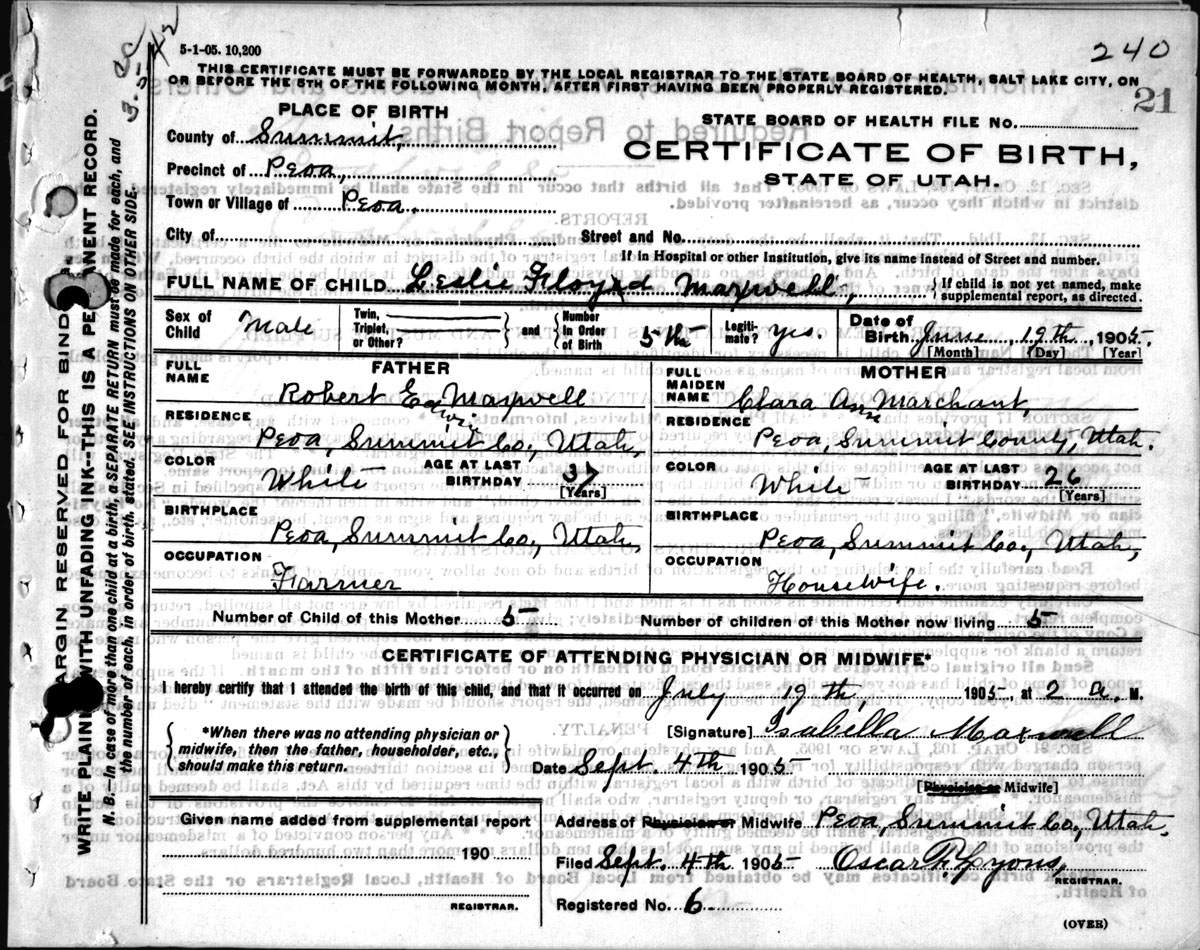 5-1-05. 10,200
240
THIS CERTIFICATE MUST BE FORWARDED BY THE LOCAL REGISTRAR TO THE STATE BOARD OF HEALTH, SALT LAKE CITY, ON
OR BEFORE THE 5TH OF THE FOLLOWING MONTH, AFTER FIRST HAVING BEEN PROPERLY REGISTERED.
21
PLACE OF BIRTH
County of Summit,
Precinct of Peoa,
Town or Village of Peoa.
STATE BOARD OF HEALTH FILE NO.
CERTIFICATE OF BIRTH,
STATE OF UTAH.
City of Street and No.
If in Hospital or other Institution, give its name instead of Street and number.
FULL NAME OF CHILD Leslie Floyd Maxwell, If child is not yet named, make supplemental report, as directed.
Sex of Child Male Twin, Triplet, or Other? and Number in Order of Birth 5th Legitimate? yes. Date of Birth June, 19th, 1905.
[Month] (Day) [Year]
FATHER
FULL NAME Robert Edwin Maxwell
RESIDENCE
Peoa, Summit Co, Utah,
COLOR White AGE AT LAST BIRTHDAY 37
[Years]
BIRTHPLACE
Peoa, Summit Co, Utah,
OCCUPATION
Farmer
MOTHER
FULL MAIDEN NAME Clara Ann Marchant,
RESIDENCE
Peoa, Summit County, Utah.
COLOR White AGE AT LAST BIRTHDAY 26
[Years]
BIRTHPLACE
Peoa, Summit Co, Utah,
OCCUPATION
Housewife.
Number of Child of this Mother 5 Number of children of this Mother now living 5
CERTIFICATE OF ATTENDING PHYSICIAN OR MIDWIFE*
I hereby certify that I attended the birth of this child, and that it occurred on July 19th, 1905, at 2 a. M.
*When there was no attending physician or
midwife, then the father, householder, etc.,
should make this return.
[Signature] Isabella Maxwell
Date Sept. 4th 1905
[Physician or Midwife]
Given name added from supplemental report
190
REGISTRAR.
Address of Physician or Midwife Peoa, Summit Co, Utah.
Filed Sept. 4th 1905 Oscar R. Lyons,
REGISTRAR.
Registered No. 6
(OVER)
MARGIN RESERVED FOR BINDING
WRITE PLAINLY WITH UNFADING INK--THIS IS A PERMANENT RECORD.
N. B.—In case of more than one child at a birth, a SEPARATE RETURN must be made for each, and
the number of each, in order of birth, stated. SEE INSTRUCTIONS ON OTHER SIDE.